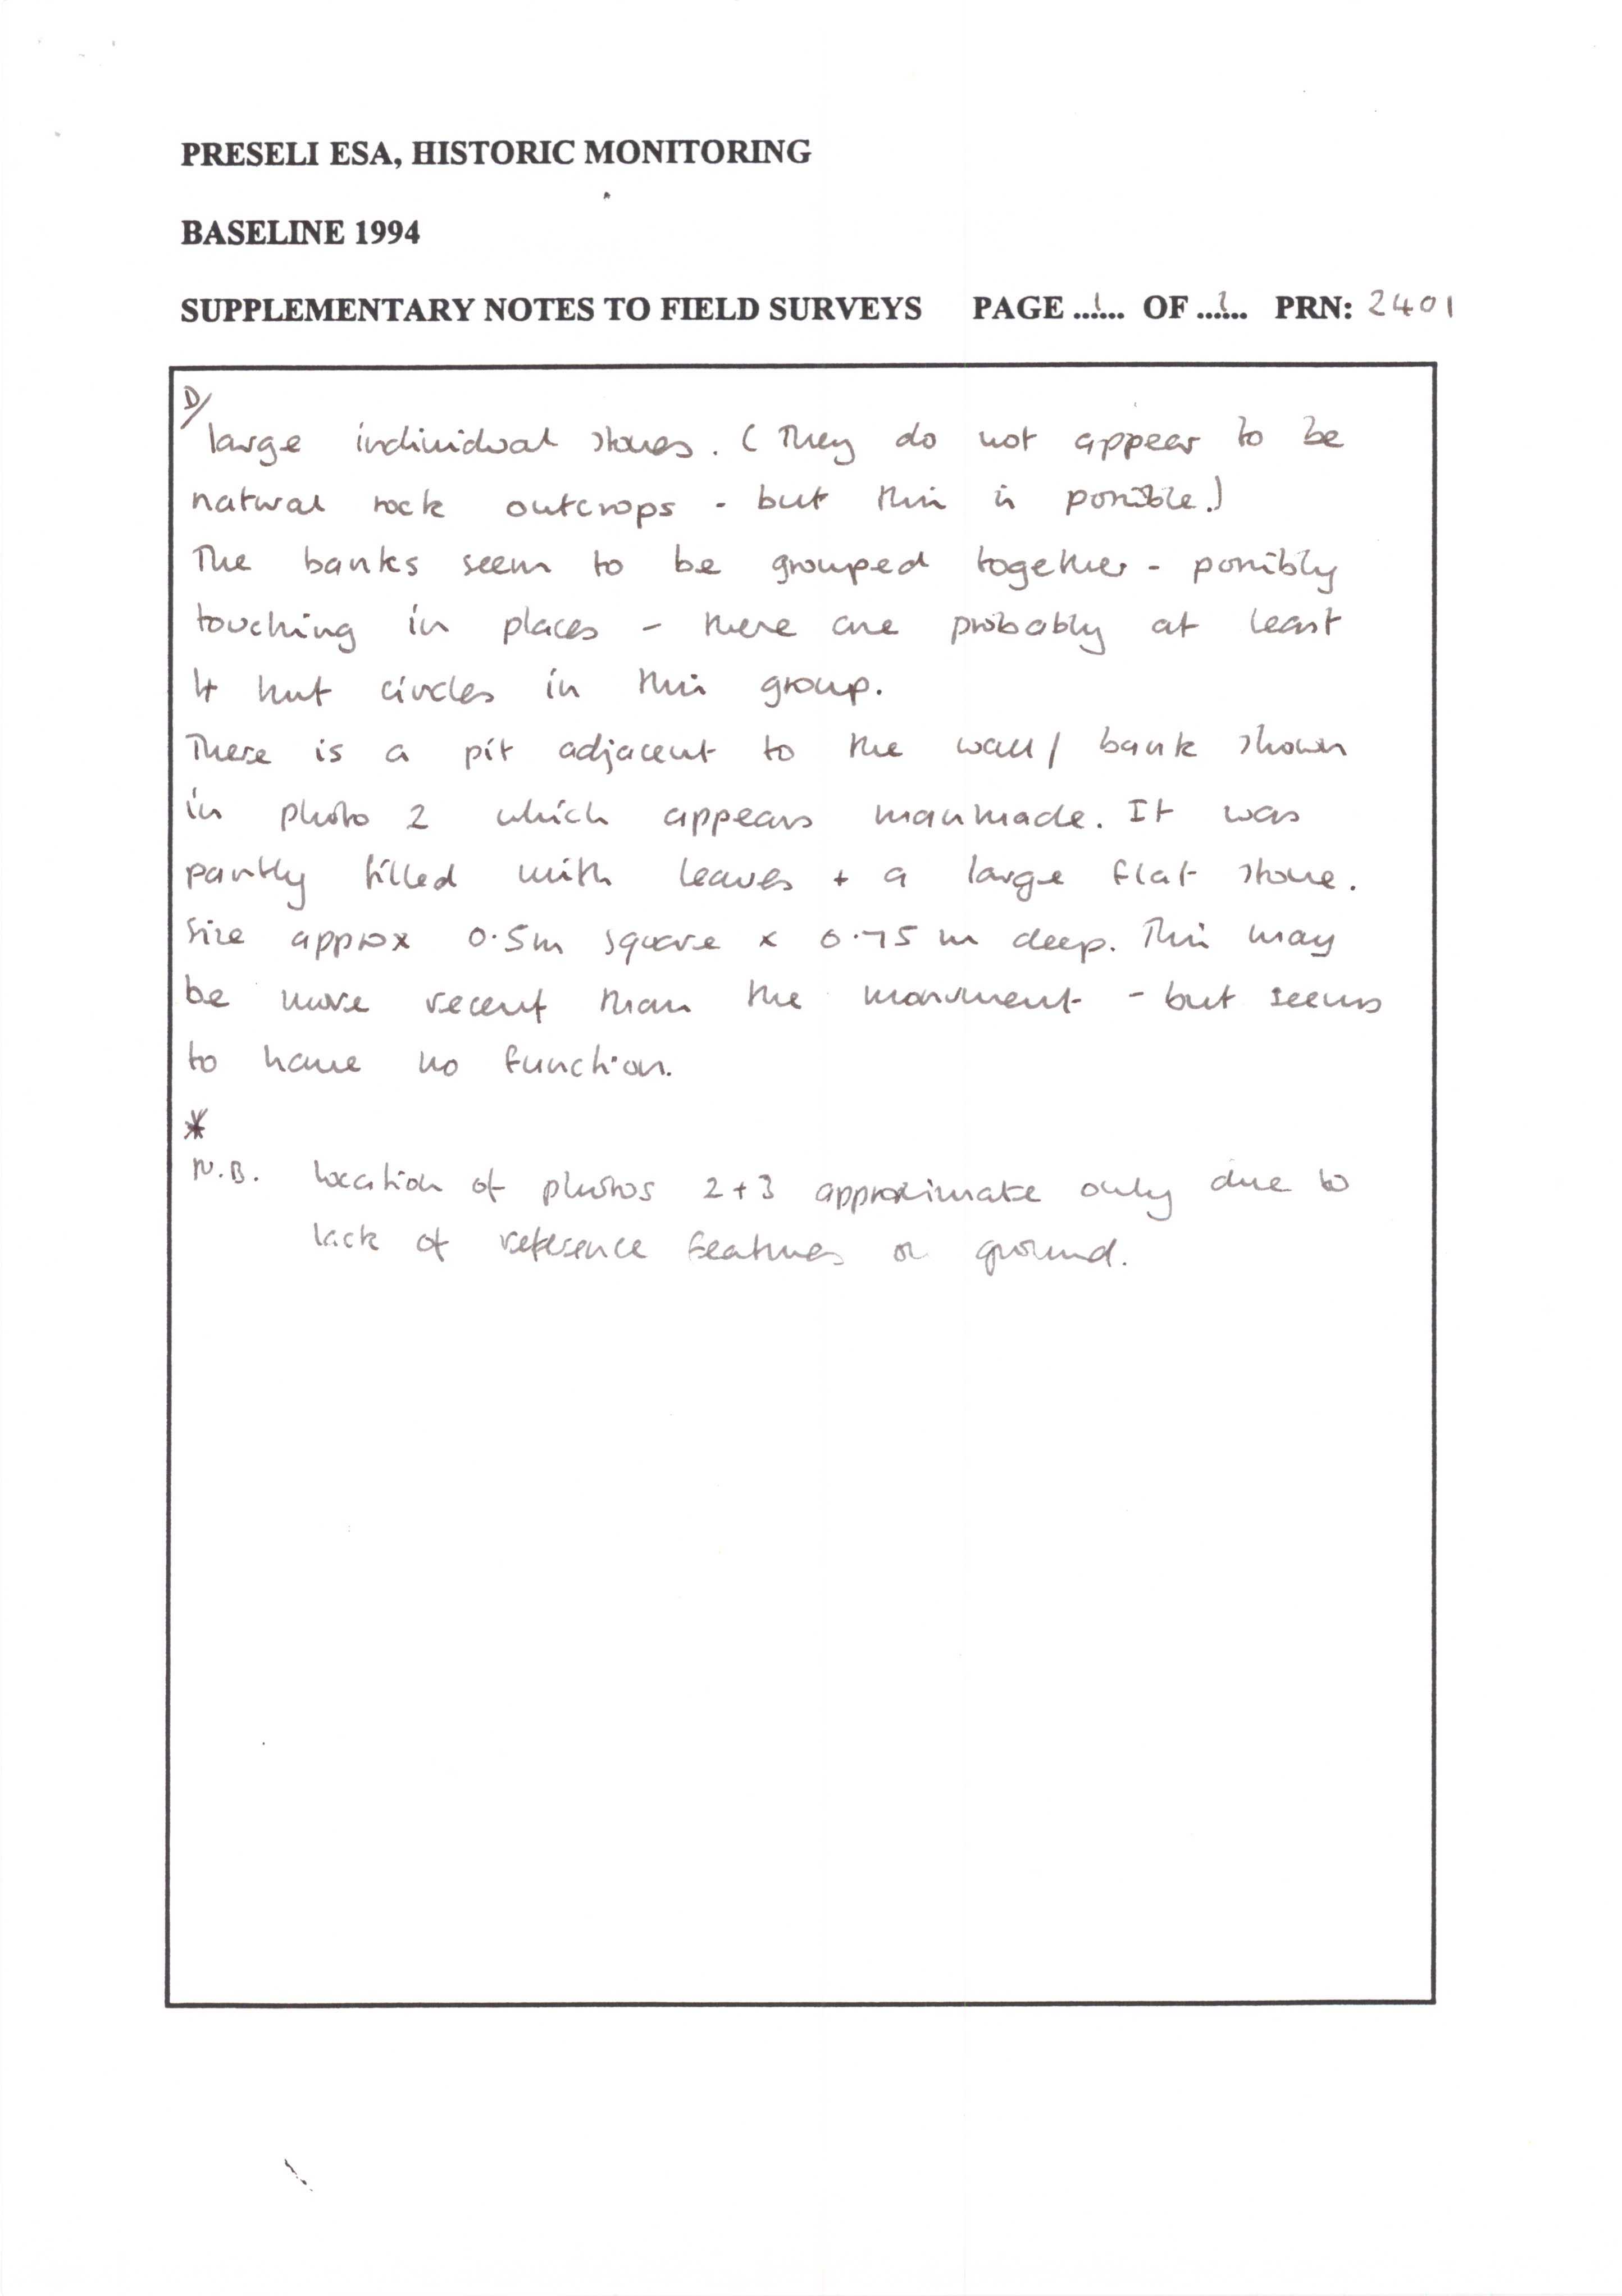 PRESELI ESA, HISTORIC MONITORING
BASELINE 1994
SUPPLEMENTARY NOTES TO FIELD SURVEYS PAGE ..1... OF ..1... PRN: 2401
D/
large individual stones. (They do not appear to be
natural rock outcrops - but this is possible.)
The banks seem to be grouped together - possibly
touching in places - there are probably at least
4 hut circles in this group.
There is a pit adjacent to the wall/bank shown
in photo 2 which appears manmade. It was
partly filled with leaves + a large flat stone.
Size approx 0.5m square x 0.75m deep. This may
be more recent than the monument - but seems
to have no function.
*
N.B. location of photos 2+3 approximate only due to
lack of reference features on ground.